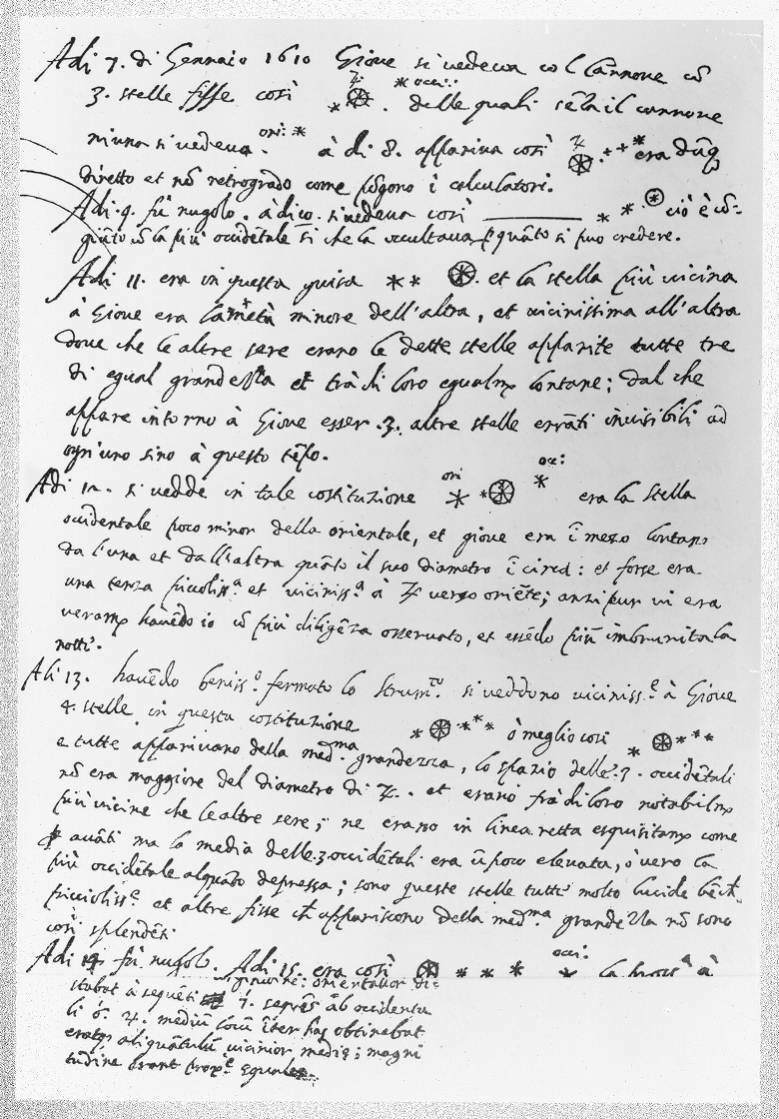 Adi 7. di Gennaio 1610 Giove si vedeva col Cannone cō
3. stelle fisse così ♃ occ: delle quali sēza il cannone
niuna si vedeva. ori: à dì 8. appariva così ♃ era dūq
diretto et nō retrogrado come pōgono i calculatori.
Adi. 9. fù nugolo. à dì 10. si vedeva così ciò è cō-
giūto cō la più occidētale sì che la occultava p quāto si può credere.
Adi 11. era in questa guisa et la stella più vicina
à Giove era la metà minore dell'altra, et vicinissima all'altra
dove che le altre sere erano le dette stelle apparite tutte tre
di egual grandezza et trà di loro egualm̃ lontane; dal che
appare intorno à Giove esser .3. altre stelle errāti invisibili ad
ogn'uno sino à questo tēpo.
Adi 12. si vedde in tale costituzione ori occ: era la stella
occidentale poco minor della orientale, et giove era ī mezo lontano
da l'una et dall'altra quāto il suo diametro ī circa: et forse era
una terza piccoliss.ª et viciniss.ª à ♃ verso oriēte; anzi pur vi era
veram̃ havēdo io cō più diligēza osservato, et essēdo più imbrunita la
notte.
Adi 13. havēdo beniss.º fermato lo strum.to si veddono viciniss.e à Giove
4. stelle in questa costituzione ò meglio così
e tutte apparivano della med.ma grandezza, lo spazio delle .3. occidētali
nō era maggiore del diametro di ♃. et erano frà di loro notabilm̃
più vicine che le altre sere; ne erano in linea retta esquisitam̃ come
avāti ma la media delle .3. occidētali era ū poco elevata, ò vero la
più occidētale alquāto depressa; sono queste stelle tutte molto lucide bēch
piccioliss.e et altre fisse che appariscono della med.ma grandezza nō sono
così splendēti.
Adi 14. fù nugolo. Adi 15. era così occi: la
orientalior di-
stabat à sequēti
li
mediū locū īter has obtinebat
aliquātulū vicinior mediæ; magni
tudine erant